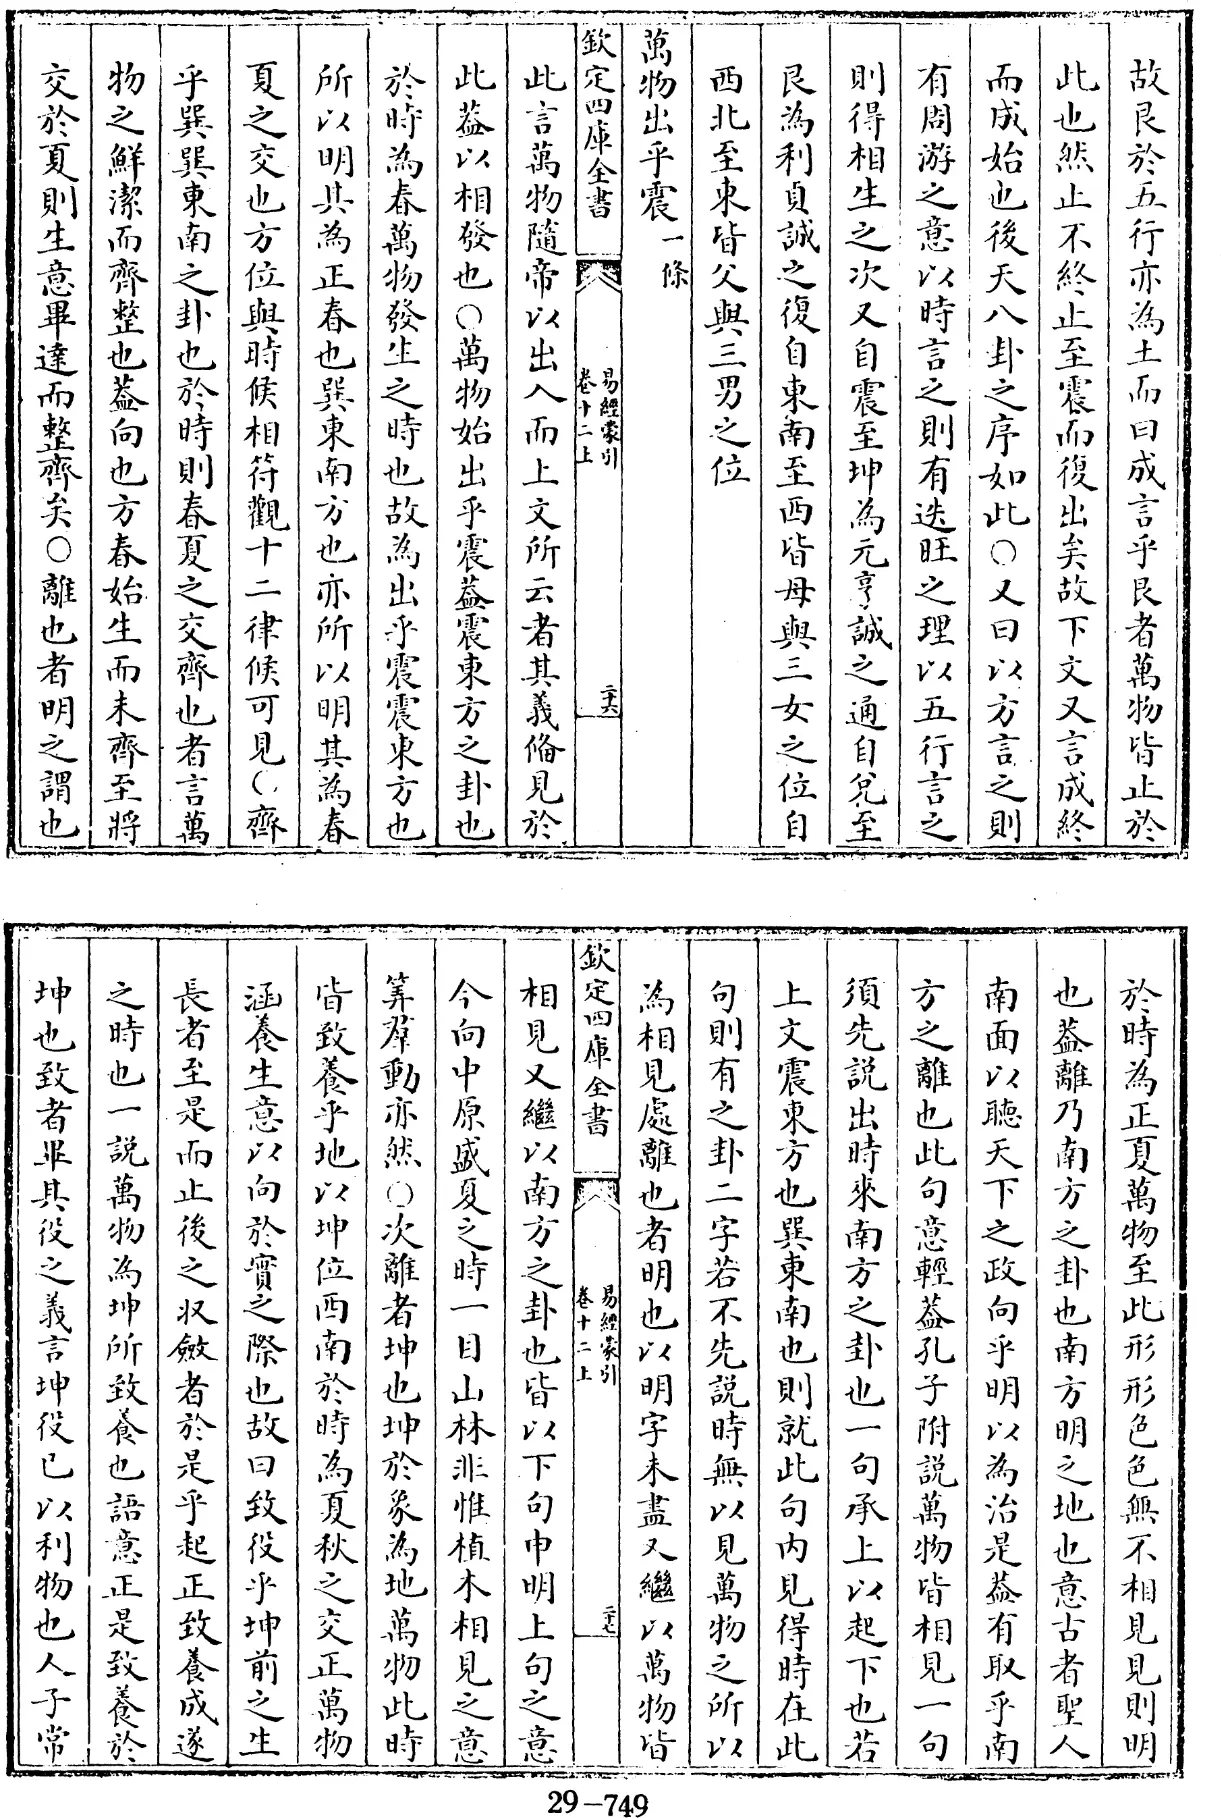 故艮於五行亦為土而曰成言乎艮者萬物皆止於
此也然止不終止至震而復出矣故下文又言成終
而成始也後天八卦之序如此○又曰以方言之則
有周游之意以時言之則有迭旺之理以五行言之
則得相生之次又自震至坤為元亨誠之通自兌至
艮為利貞誠之復自東南至西皆母與三女之位自
西北至東皆父與三男之位
萬物出乎震一條
欽定四庫全書
易經蒙引
卷十二上
二十六
此言萬物隨帝以出入而上文所云者其義備見於
此葢以相發也○萬物始出乎震葢震東方之卦也
於時為春萬物發生之時也故為出乎震震東方也
所以明其為正春也巽東南方也亦所以明其為春
夏之交也方位與時候相符觀十二律候可見○齊
乎巽巽東南之卦也於時則春夏之交齊也者言萬
物之鮮潔而齊整也葢向也方春始生而未齊至將
交於夏則生意畢達而整齊矣○離也者明之謂也
於時為正夏萬物至此形形色色無不相見見則明
也葢離乃南方之卦也南方明之地也意古者聖人
南面以聽天下之政向乎明以為治是葢有取乎南
方之離也此句意輕葢孔子附説萬物皆相見一句
須先説出時來南方之卦也一句承上以起下也若
上文震東方也巽東南也則就此句内見得時在此
句則有之卦二字若不先説時無以見萬物之所以
為相見處離也者明也以明字未盡又繼以萬物皆
欽定四庫全書
易經蒙引
卷十二上
二十七
相見又繼以南方之卦也皆以下句申明上句之意
今向中原盛夏之時一目山林非惟植木相見之意
筭羣動亦然○次離者坤也坤於象為地萬物此時
皆致養乎地以坤位西南於時為夏秋之交正萬物
涵養生意以向於實之際也故曰致役乎坤前之生
長者至是而止後之収斂者於是乎起正致養成遂
之時也一説萬物為坤所致養也語意正是致養於
坤也致者罪其役之義言坤役已以利物也人子常
29-749